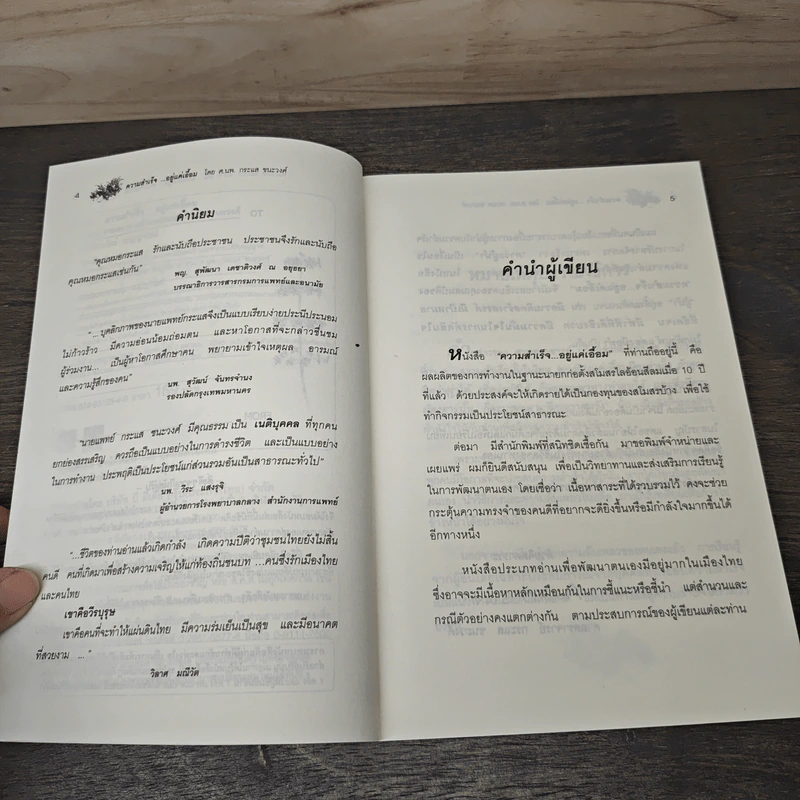 4
ความสำเร็จ ...อยู่แค่เอื้อม โดย ศ.นพ. กระแส ชนะวงศ์
คำนิยม
"คุณหมอกระแส รักและนับถือประชาชน ประชาชนจึงรักและนับถือ
คุณหมอกระแสเช่นกัน"
พญ. สุพัฒนา เดชาติวงศ์ ณ อยุธยา
บรรณาธิการวารสารกรมการแพทย์และอนามัย
"...บุคลิกภาพของนายแพทย์กระแสจึงเป็นแบบเรียบง่ายประนีประนอม
ไม่ก้าวร้าว มีความอ่อนน้อมถ่อมตน และหาโอกาสที่จะกล่าวชื่นชม
ผู้ร่วมงาน... เป็นผู้หาโอกาสศึกษาคน พยายามเข้าใจเหตุผล อารมณ์
และความรู้สึกของคน"
นพ. สุวัฒน์ จันทรจำนง
รองปลัดกรุงเทพมหานคร
"นายแพทย์ กระแส ชนะวงศ์ มีคุณธรรม เป็น เนติบุคคล ที่ทุกคน
ยกย่องสรรเสริญ ควรถือเป็นแบบอย่างในการดำรงชีวิต และเป็นแบบอย่าง
ในการทำงาน ประพฤติเป็นประโยชน์แก่ส่วนรวมอันเป็นสาธารณะทั่วไป"
นพ. วีระ แสงรุจิ
ผู้อำนวยการโรงพยาบาลกลาง สำนักงานการแพทย์
"...ชีวิตของท่านอ่านแล้วเกิดกำลัง เกิดความปีติว่าชุมชนไทยยังไม่สิ้น
คนดี คนที่เกิดมาเพื่อสร้างความเจริญให้แก่ท้องถิ่นชนบท ...คนซึ่งรักเมืองไทย
และคนไทย
เขาคือวีรบุรุษ
เขาคือคนที่จะทำให้แผ่นดินไทย มีความร่มเย็นเป็นสุข และมีอนาคต
ที่สวยงาม ..."
วิลาศ มณีวัต
5
คำนำผู้เขียน
หนังสือ "ความสำเร็จ...อยู่แค่เอื้อม" ที่ท่านถืออยู่นี้ คือ
ผลผลิตของการทำงานในฐานะนายกก่อตั้งสโมสรไลอ้อนสีลมเมื่อ 10 ปี
ที่แล้ว ด้วยประสงค์จะให้เกิดรายได้เป็นกองทุนของสโมสรบ้าง เพื่อใช้
ทำกิจกรรมเป็นประโยชน์สาธารณะ
ต่อมา มีสำนักพิมพ์ที่สนิทชิดเชื้อกัน มาขอพิมพ์จำหน่ายและ
เผยแพร่ ผมก็ยินดีสนับสนุน เพื่อเป็นวิทยาทานและส่งเสริมการเรียนรู้
ในการพัฒนาตนเอง โดยเชื่อว่า เนื้อหาสาระที่ได้รวบรวมไว้ คงจะช่วย
กระตุ้นความทรงจำของคนดีที่อยากจะดียิ่งขึ้นหรือมีกำลังใจมากขึ้นได้
อีกทางหนึ่ง
หนังสือประเภทอ่านเพื่อพัฒนาตนเองมีอยู่มากในเมืองไทย
ซึ่งอาจจะมีเนื้อหาหลักเหมือนกันในการชี้แนะหรือชี้นำ แต่สำนวนและ
กรณีตัวอย่างคงแตกต่างกัน ตามประสบการณ์ของผู้เขียนแต่ละท่าน